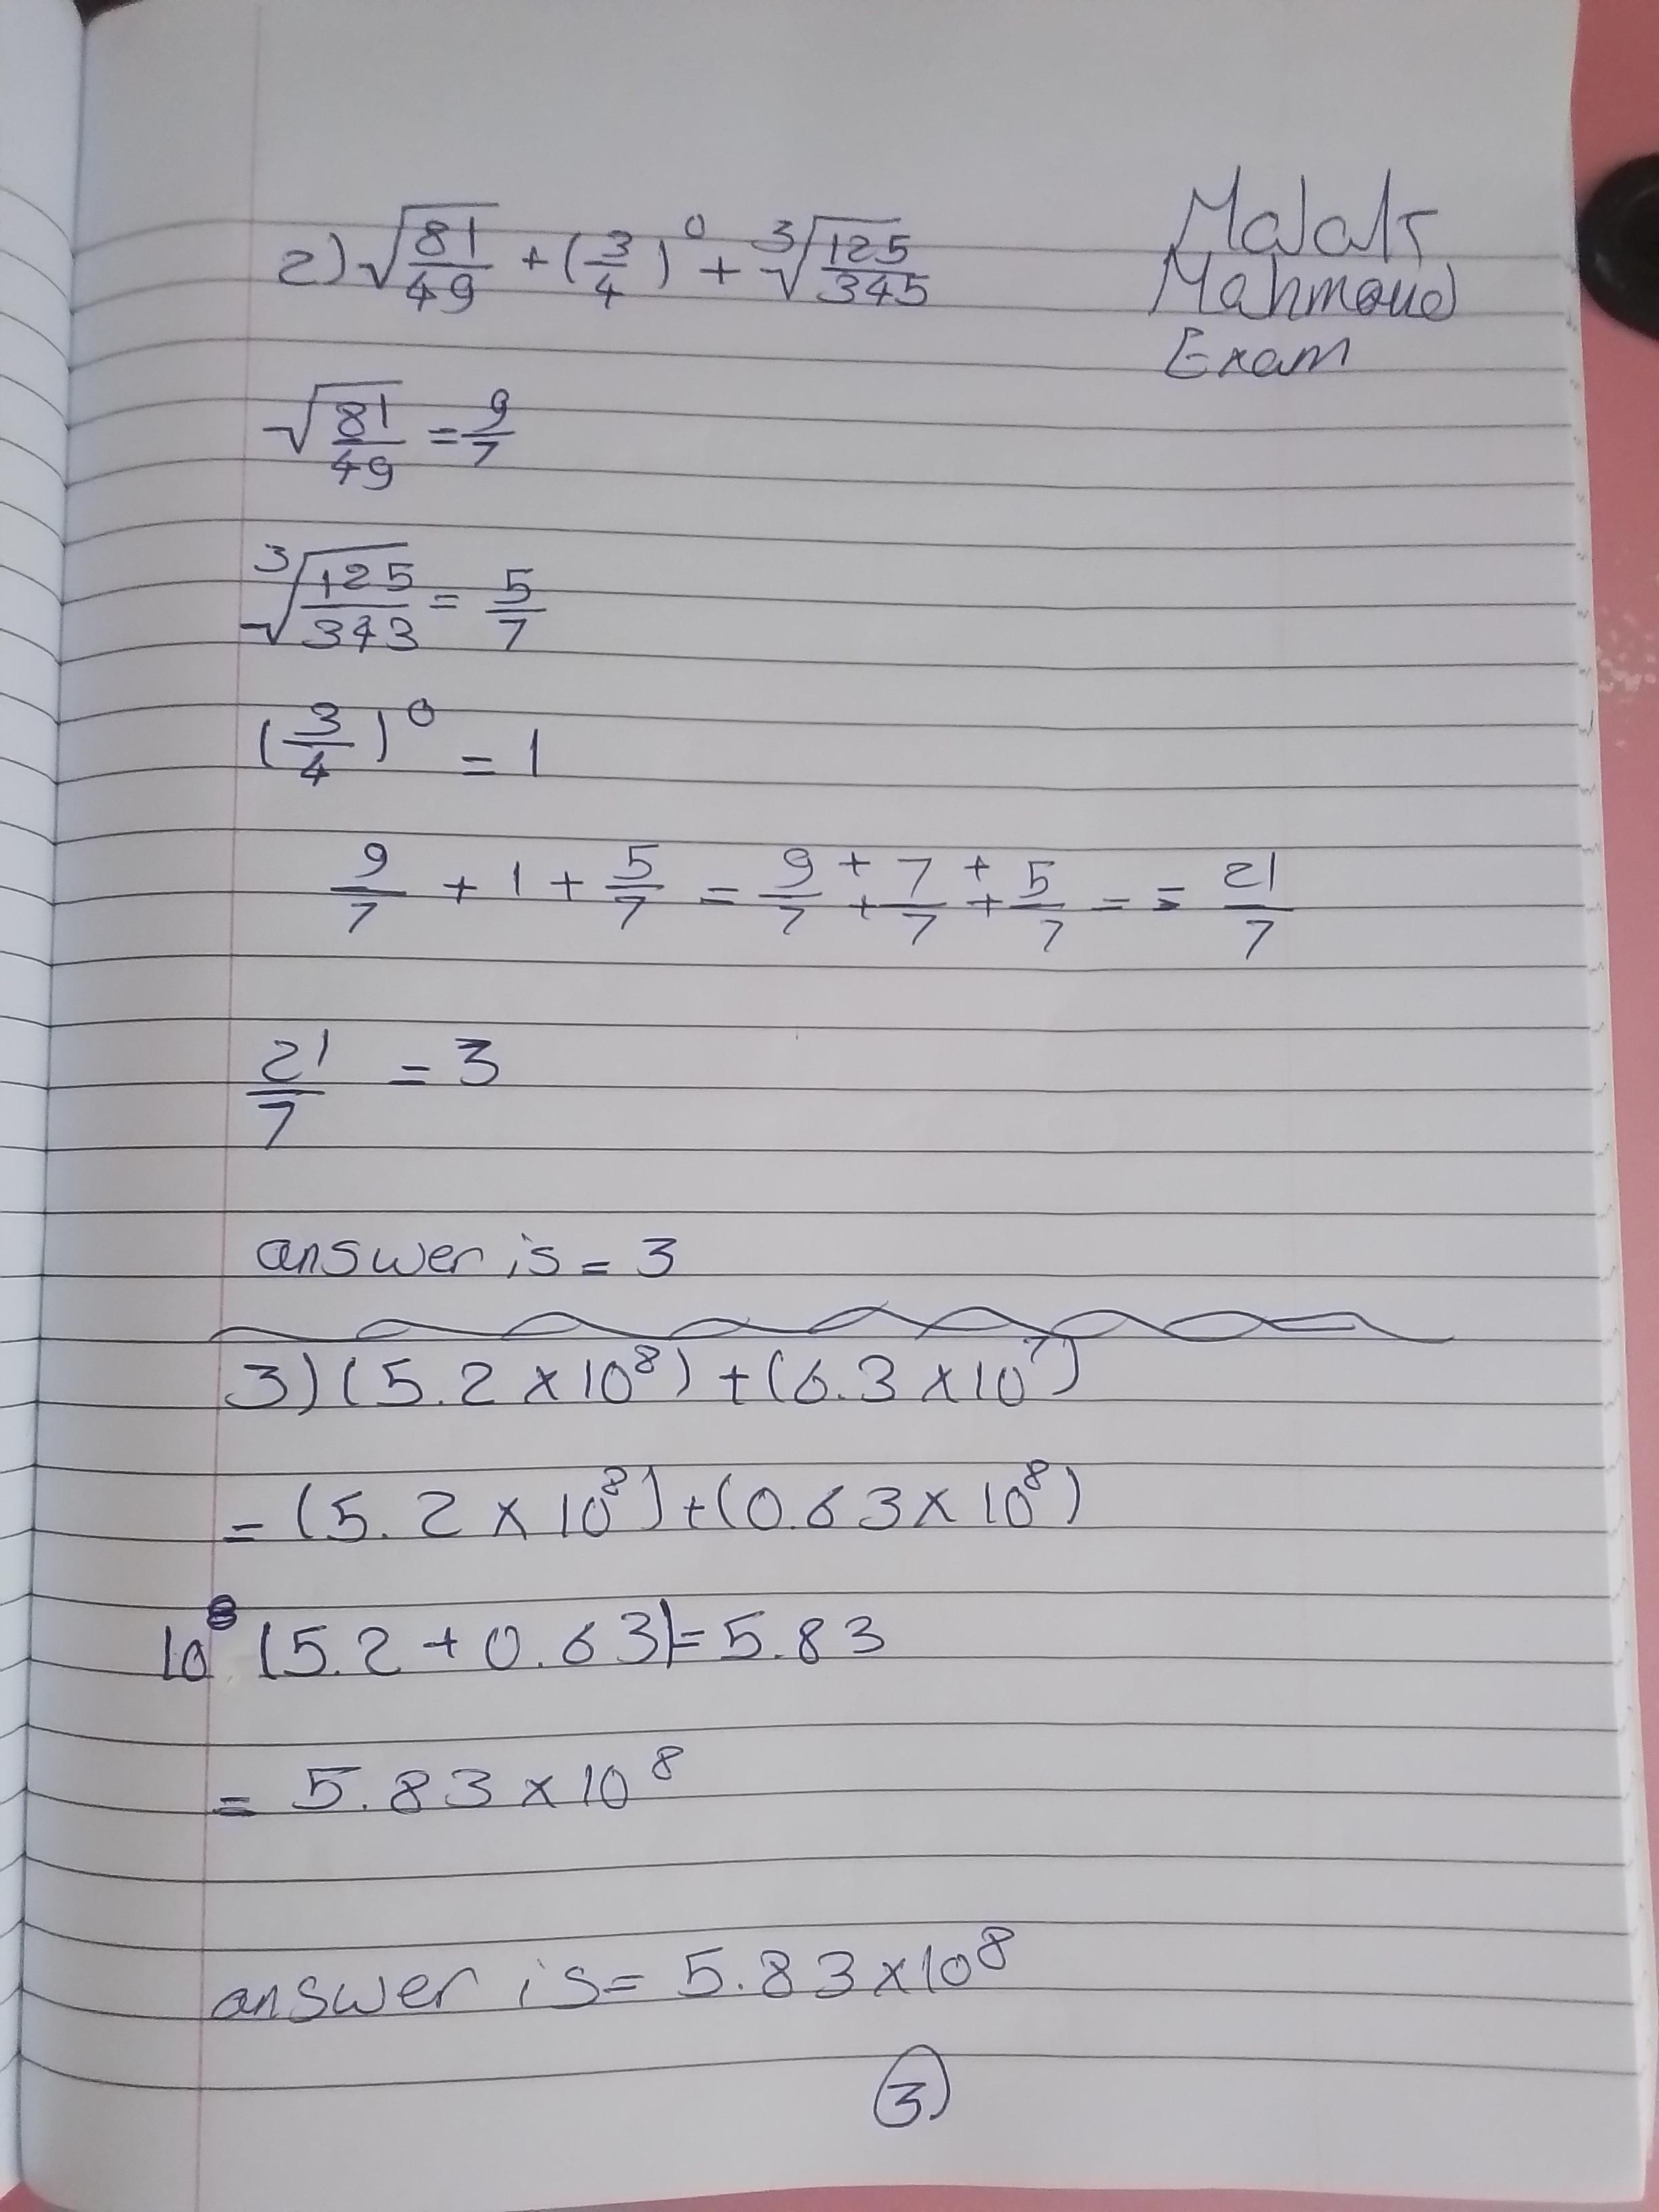 2) √81/49 + (3/4)⁰ + ³√125/345
Malak
Mahmoud
Exam
√81/49 = 9/7
³√125/343 = 5/7
(3/4)⁰ = 1
9/7 + 1 + 5/7 = 9/7 + 7/7 + 5/7 = = 21/7
21/7 = 3
answer is = 3
3) (5.2 × 10⁸) + (6.3 × 10⁷)
= (5.2 × 10⁸) + (0.63 × 10⁸)
10⁸ (5.2 + 0.63) = 5.83
= 5.83 × 10⁸
answer is = 5.83 × 10⁸
3